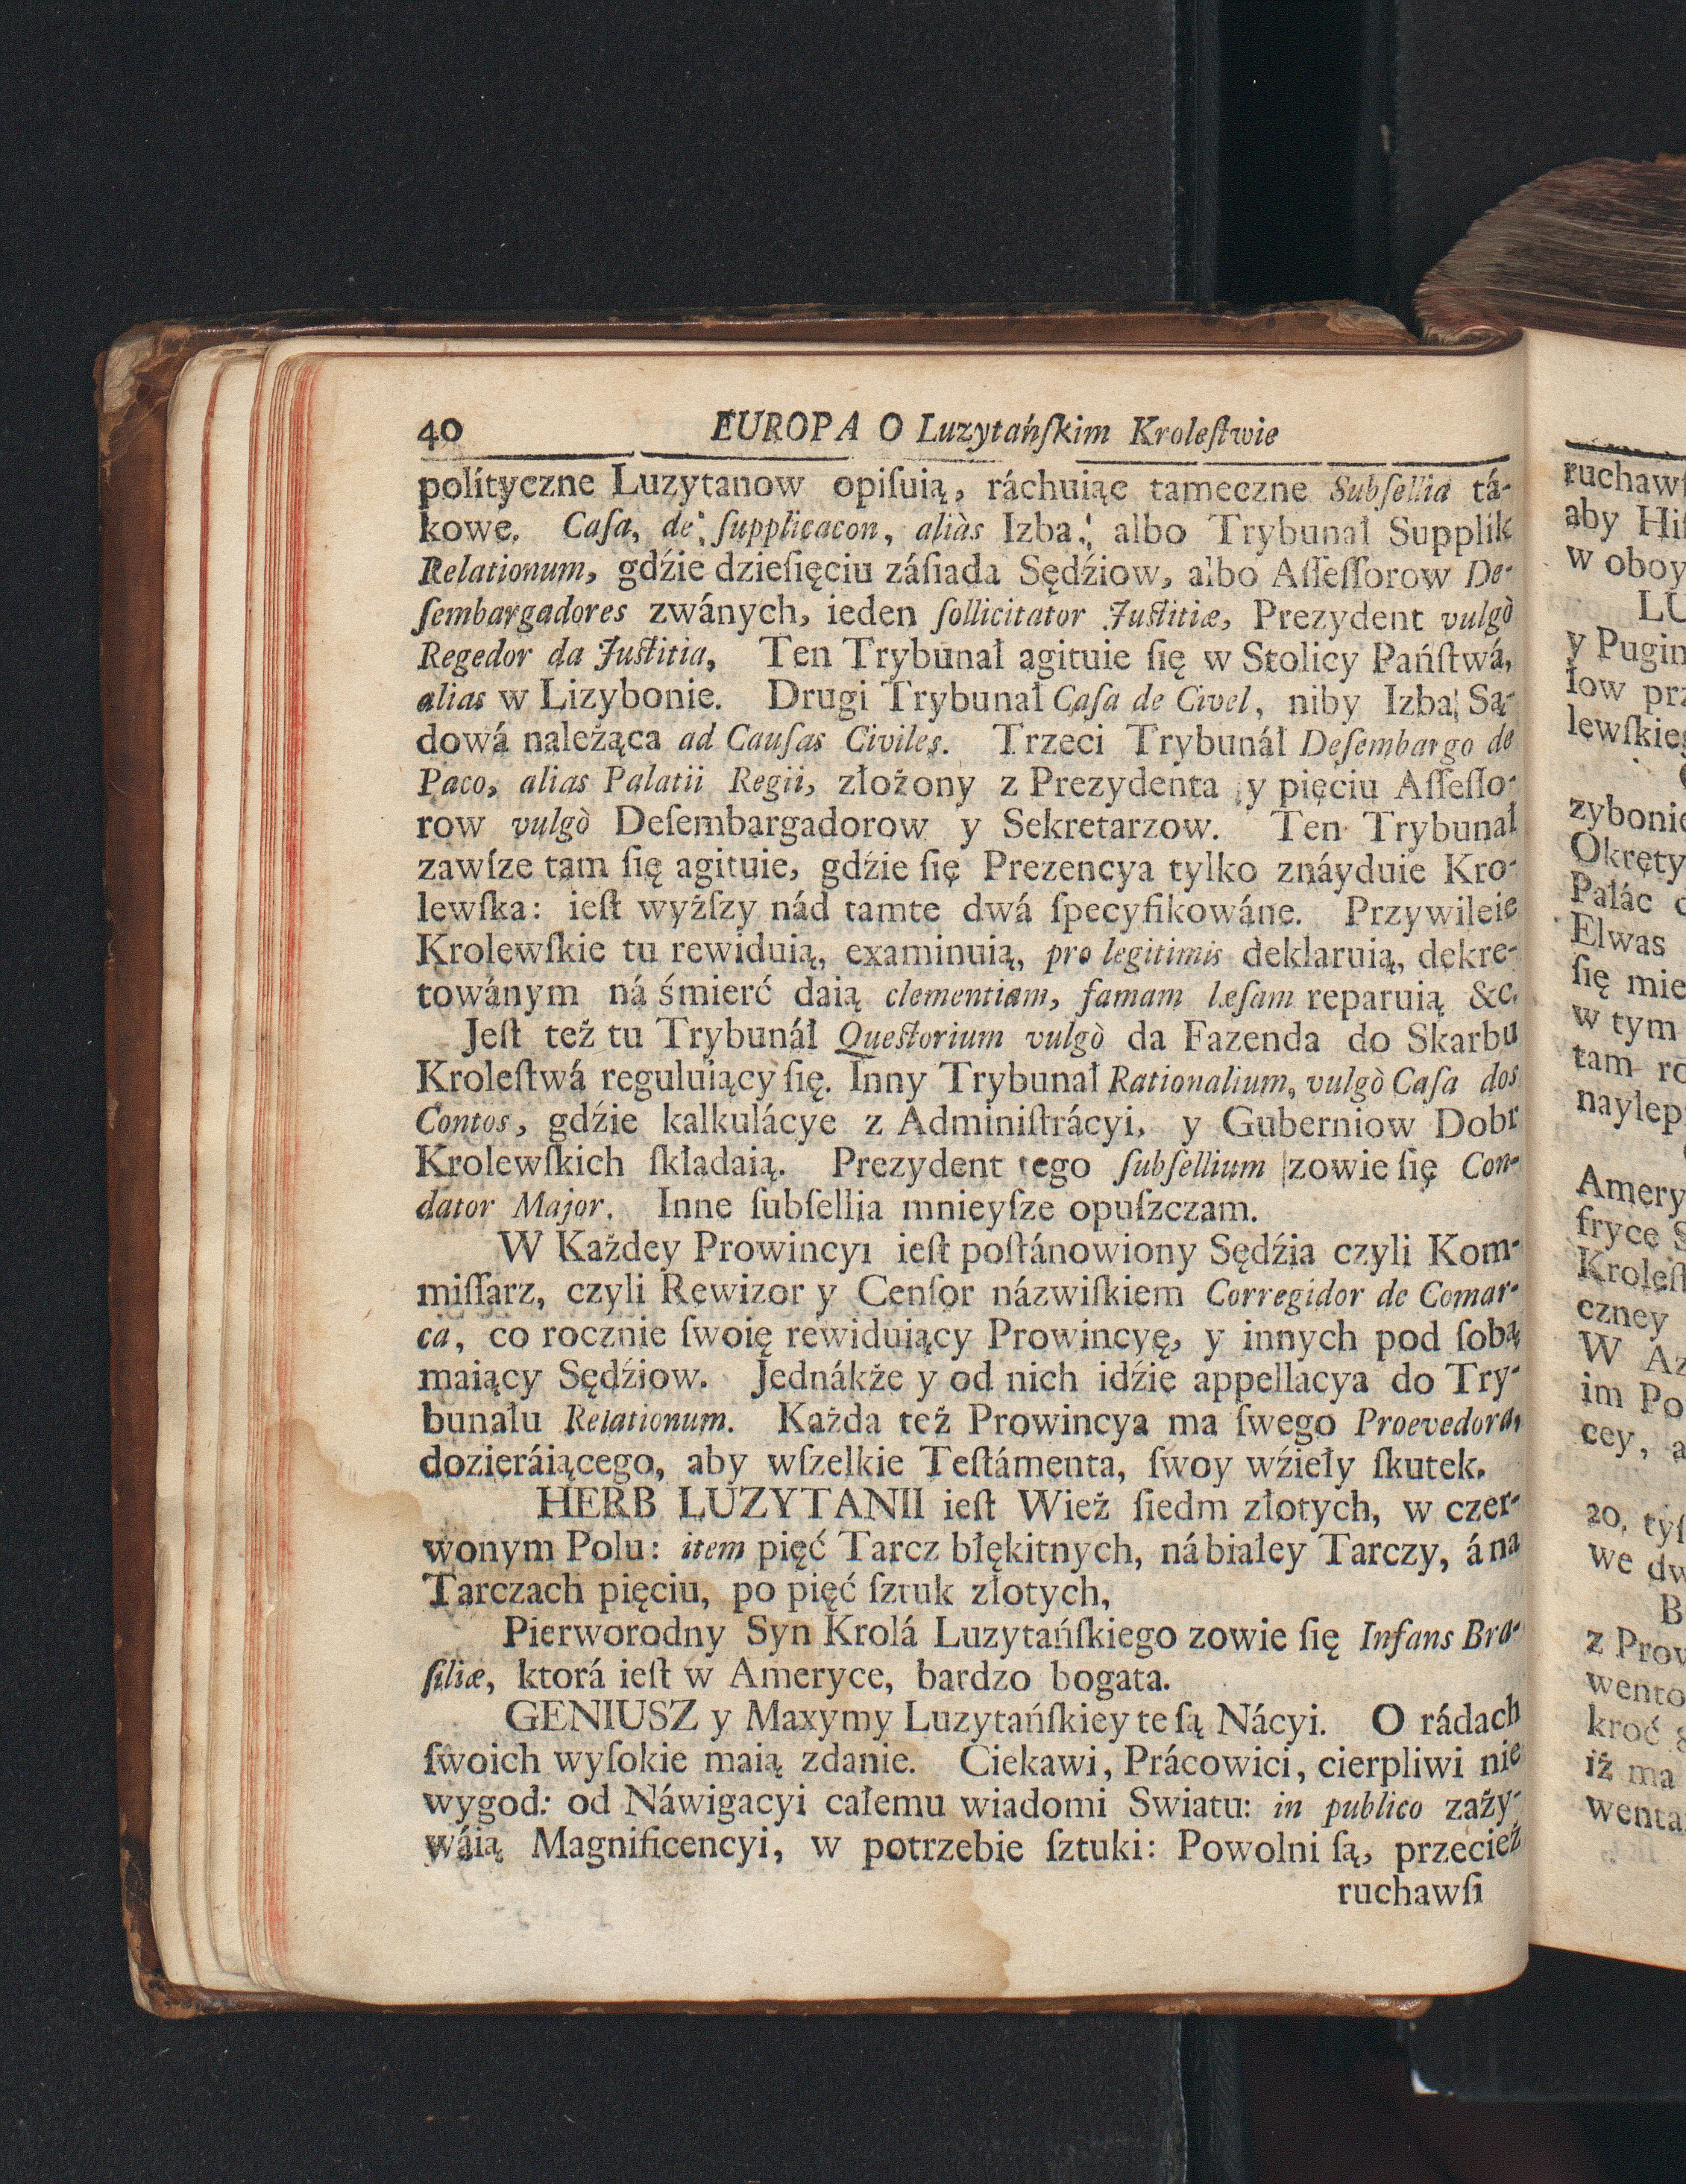 40 EUROPA O Luzytańſkim Kroleſtwie
polítyczne Luzytanow opiſuią, ráchuiąc tameczne Subſellia tá-
kowe. Caſa, de ſupplicacon, aliàs Izba, albo Trybunał Supplik
Relationum, gdźie dzieſięciu záſiada Sędźiow, albo Aſſeſſorow De-
ſembargadores zwánych, ieden ſollicitator Juſtitiæ, Prezydent vulgò
Regedor da Juſtitia, Ten Trybunał agituie ſię w Stolicy Pańſtwá,
alias w Lizybonie. Drugi Trybunał Caſa de Civel, niby Izba Są-
dowá należąca ad Cauſas Civiles. Trzeci Trybunáł Deſembargo de
Paco, alias Palatii Regii, złożony z Prezydenta y pięciu Aſſeſſo-
row vulgò Deſembargadorow y Sekretarzow. Ten Trybunał
zawſze tam ſię agituie, gdźie ſię Prezencya tylko znáyduie Kro-
lewſka: ieſt wyźſzy nád tamte dwá ſpecyfikowáne. Przywileie
Krolewſkie tu rewiduią, examinuią, pro legitimis deklaruią, dekre-
towánym ná śmierć daią clementiam, famam læſam reparuią &c.
Jeſt też tu Trybunáł Queſtorium vulgò da Fazenda do Skarbu
Kroleſtwá reguluiący ſię. Inny Trybunał Rationalium, vulgò Caſa dos
Contos, gdźie kalkulácye z Adminiſtrácyi, y Guberniow Dobr
Krolewſkich ſkładaią. Prezydent tego ſubſellium zowie ſię Con-
dator Major. Inne ſubſellia mnieyſze opuſzczam.
W Każdey Prowincyi ieſt poſtánowiony Sędźia czyli Kom-
miſſarz, czyli Rewizor y Cenſor názwiſkiem Corregidor de Comar-
ca, co rocznie ſwoię rewiduiący Prowincyę, y innych pod ſobą
maiący Sędźiow. Jednákże y od nich idźie appellacya do Try-
bunału Relationum. Każda też Prowincya ma ſwego Proevedora,
dozieráiącego, aby wſzelkie Teſtámenta, ſwoy wźieły ſkutek.
HERB LUZYTANII ieſt Wież ſiedm złotych, w czer-
wonym Polu: item pięć Tarcz błękitnych, ná białey Tarczy, á na
Tarczach pięciu, po pięć ſztuk złotych,
Pierworodny Syn Krolá Luzytańſkiego zowie ſię Infans Bra-
ſiliæ, ktorá ieſt w Ameryce, bardzo bogata.
GENIUSZ y Maxymy Luzytańſkiey te ſą Nácyi. O rádach
ſwoich wyſokie maią zdanie. Ciekawi, Prácowici, cierpliwi nie
wygod: od Náwigacyi całemu wiadomi Swiatu: in publico zaży-
wáią Magnificencyi, w potrzebie ſztuki: Powolni ſą, przecież
ruchawſi
ruchawſ
aby Hiſ
w oboy
LU
y Pugin
łow prz
lewſkie
zyboni
Okręty
Pałác
Elwas
ſię mie
w tym
tam ro
naylep
Amery
fryce S
Kroleſt
czney
W Az
im Po
cey, a
20, tyſ
we dw
B
z Prow
wento
kroć
iż ma
wenta